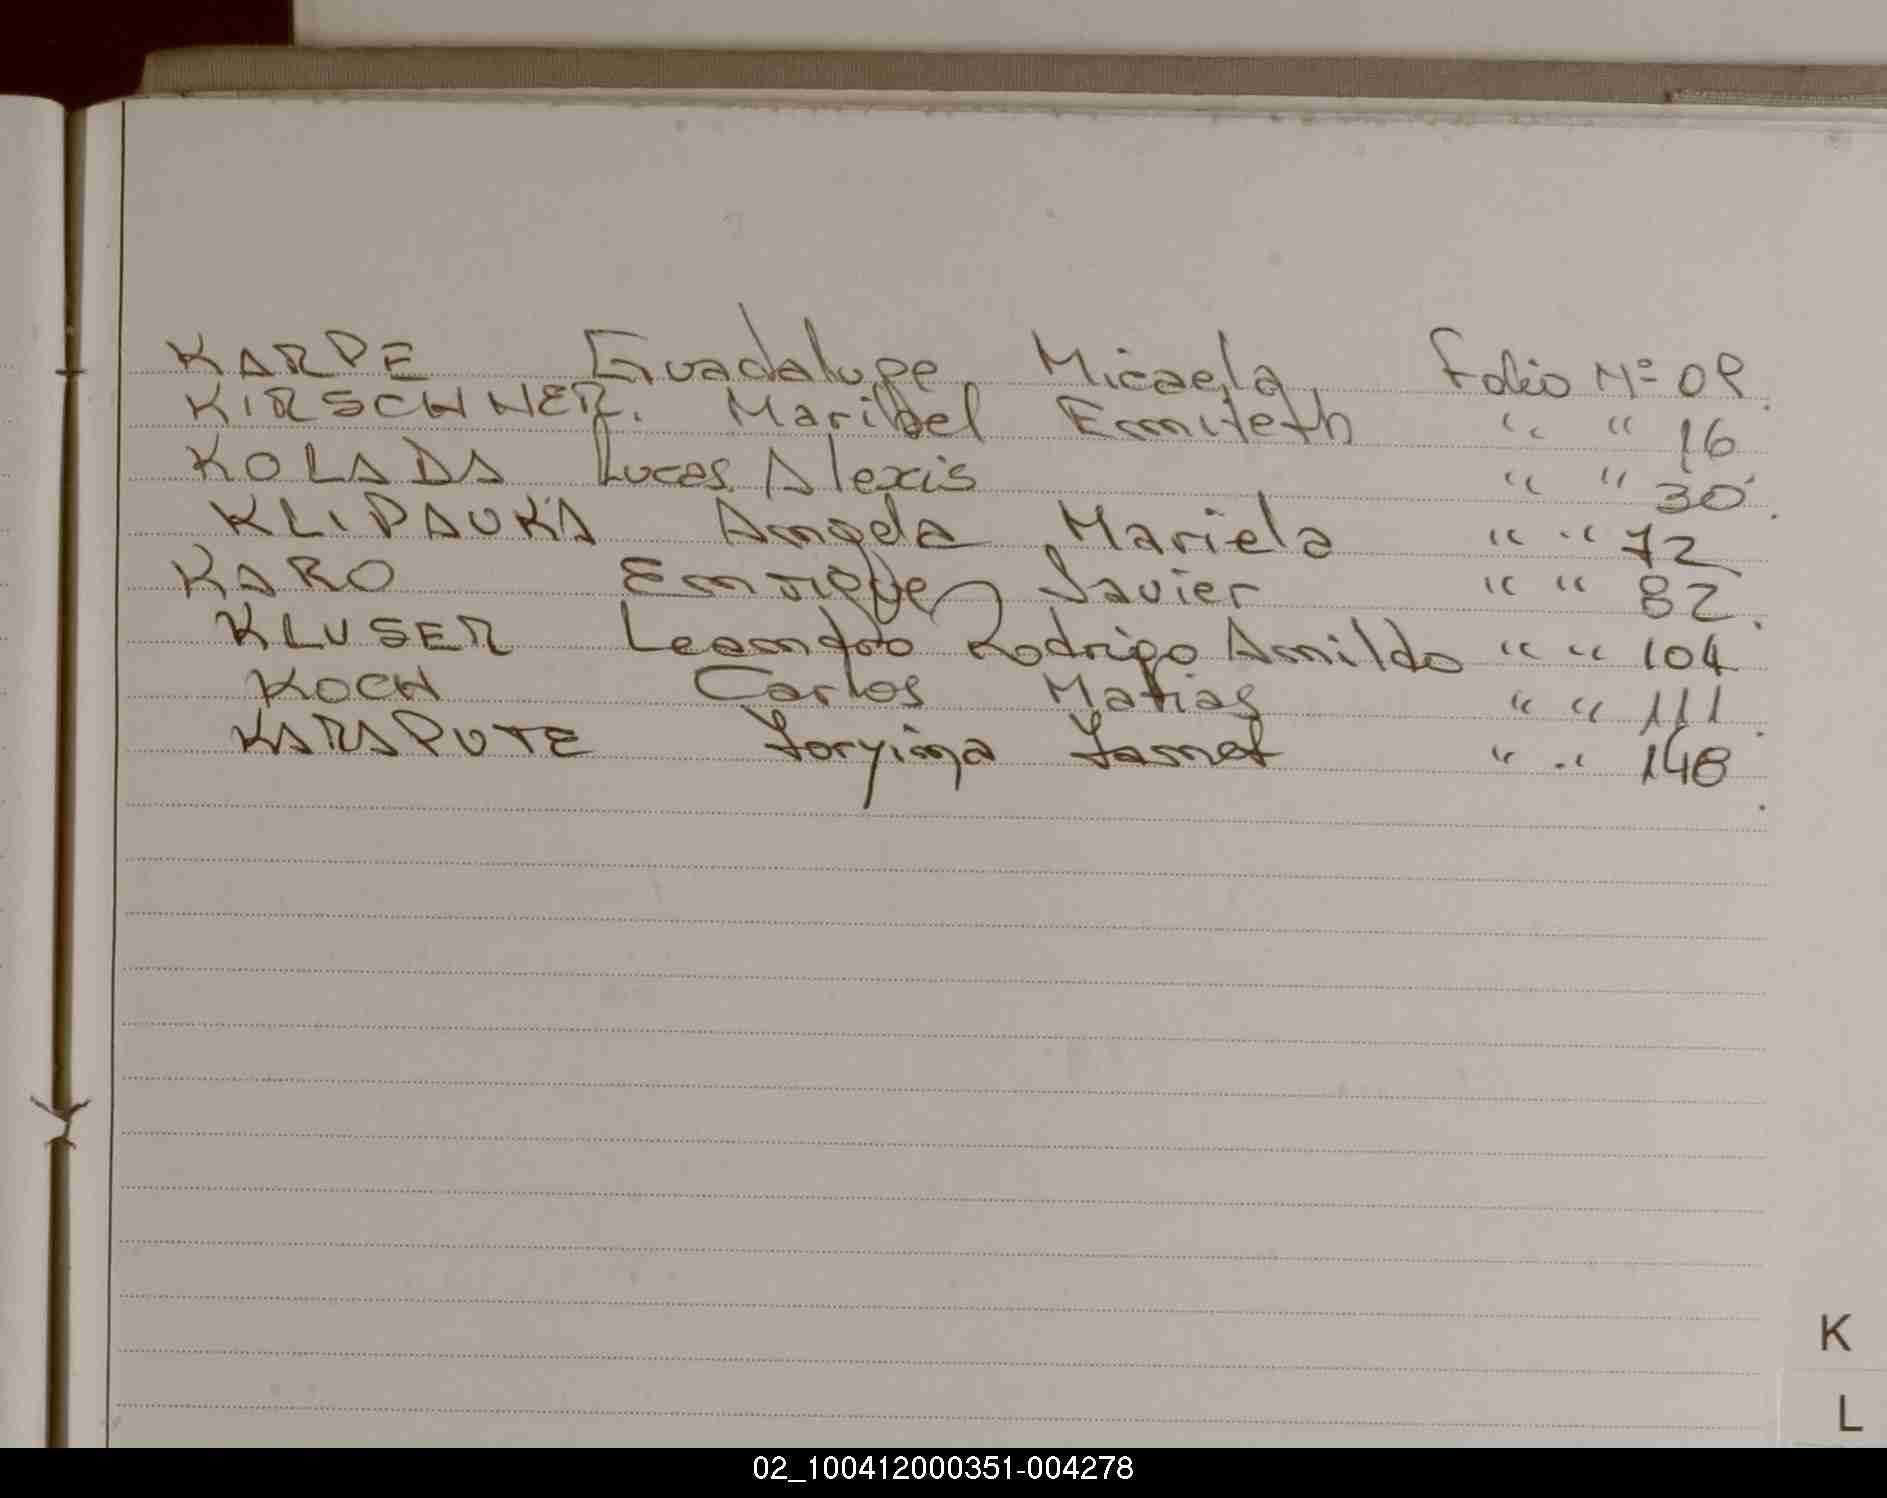 KARPE Guadalupe Micaela Folio Nº 09.
KIRSCHNER. Maribel Ermiteth " " 16
KOLADA Lucas Alexis " " 30.
KLIPAUKA Angela Mariela " " 72
KARO Enrique Javier " " 82
KLUSER Leandro Rodrigo Arnildo " " 104
KOCH Carlos Matias " " 111
KARAPUTE Yoryina Yanet " " 148
K
L
02_100412000351-004278